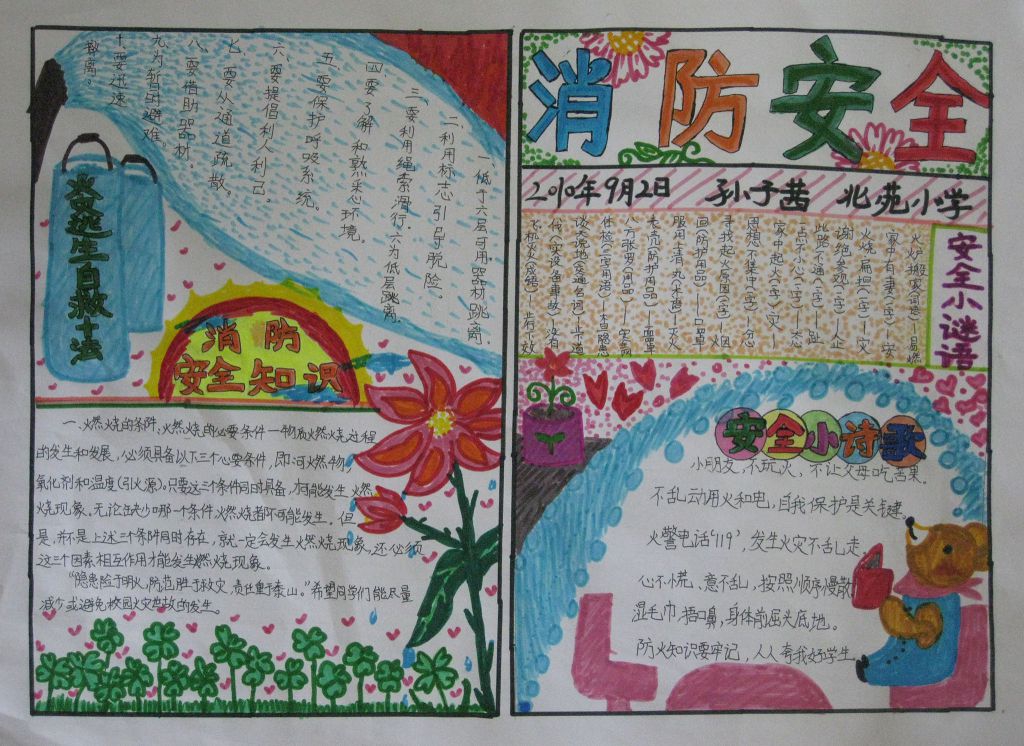 消防安全
2010年9月2日 孙子茜 北苑小学
安全小谜语
火炉搬家(词语)—易燃
火烧扁担(一字)—灾
谢绝参观(二字)—
此路不通(二字)—禁止
家中起火(字)—灾
思想不集中(字)—
服用士清丸(术语)—灭火
安全小诗歌
小朋友,不玩火,不让父母吃苦果。
不乱动用火和电,自我保护是关键。
火警电话“119”,发生火灾不乱走。
心不慌、意不乱,按照顺序慢散
湿毛巾,捂口鼻,身体前屈头底地。
防火知识要牢记,人人夸我好学生。
火灾逃生自救十法
一、低于六层可用,器材跳离。
二、利用标志引导脱险。
三、要利用绳索滑行,六为低层跳离。
四、要了解和熟悉环境。
五、要保护呼吸系统。
六、要提倡利人利己。
七、要从通道疏散。
八、要借助器材。
九、为暂时避难。
十、要迅速
撤离。
消防
安全知识
一、火燃烧的条件、火燃烧的必要条件—物质火燃烧过程
的发生和发展,必须具备以下三个必要条件,即:可燃物,
氧化剂和温度(引火源)。只要这三个条件同时具备,才可能发生火燃
烧现象,无论缺少哪一个条件火燃烧都不可能发生。但
是,亦不是上述三个条件同时存在,就一定会发生火燃烧现象,还必须
这三个因素相互作用才能发生燃烧现象。
“隐患险于明火,防范胜于救灾,责任重于泰山。”希望同学们能尽量
减少或避免校园火灾事故的发生。